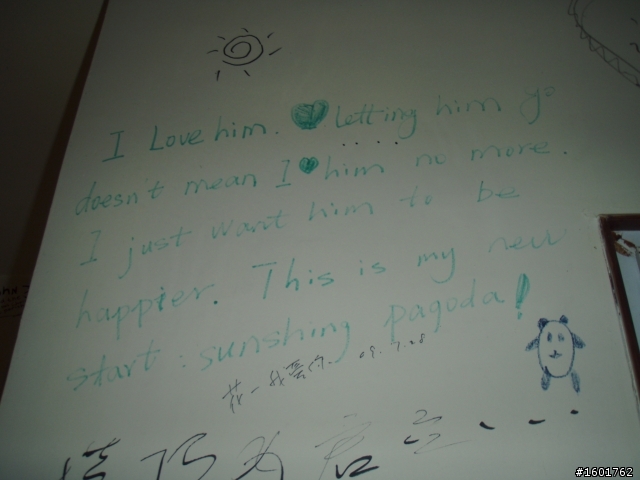 I Love him. letting him go
doesn't mean I him no more.
I just want him to be
happier. This is my new
start : sunshing pagoda!
09.7.28
#1601762